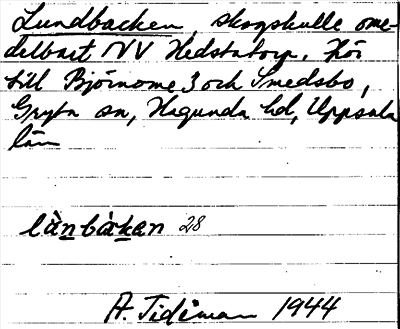 Lundbacken, skogskulle ome-
delbart NV Hedstatorp. Hör
till Björnome 3 och Smedsbo,
Gryta sn, Hagunda hd, Uppsala
län
lànbàkan 28
A. Tidiman 1944